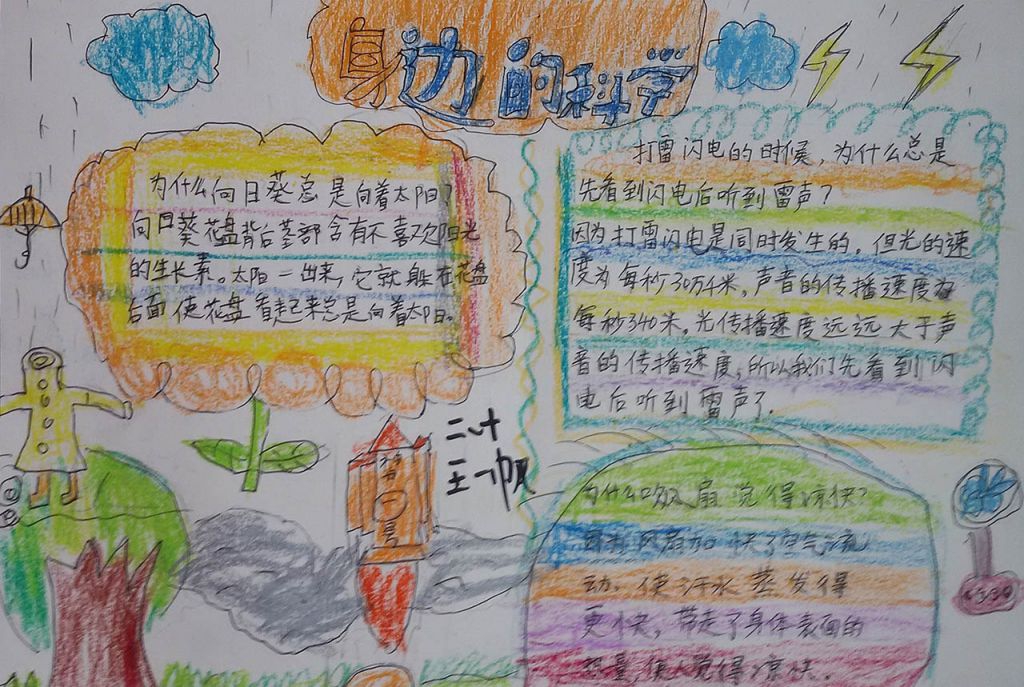 身边的科学
为什么向日葵总是向着太阳？
向日葵花盘背后茎部含有不喜欢阳光
的生长素。太阳一出来，它就躲在花盘
后面使花盘看起来总是向着太阳。
打雷闪电的时候，为什么总是
先看到闪电后听到雷声？
因为打雷闪电是同时发生的，但光的速
度为每秒30万千米，声音的传播速度为
每秒340米，光传播速度远远大于声
音的传播速度，所以我们先看到闪
电后听到雷声了.
二计
王一帆
为什么吹风扇觉得凉快？
风扇加快了空气流
动，使汗水蒸发得
更快，带走了身体表面的
热量，使人觉得凉快.